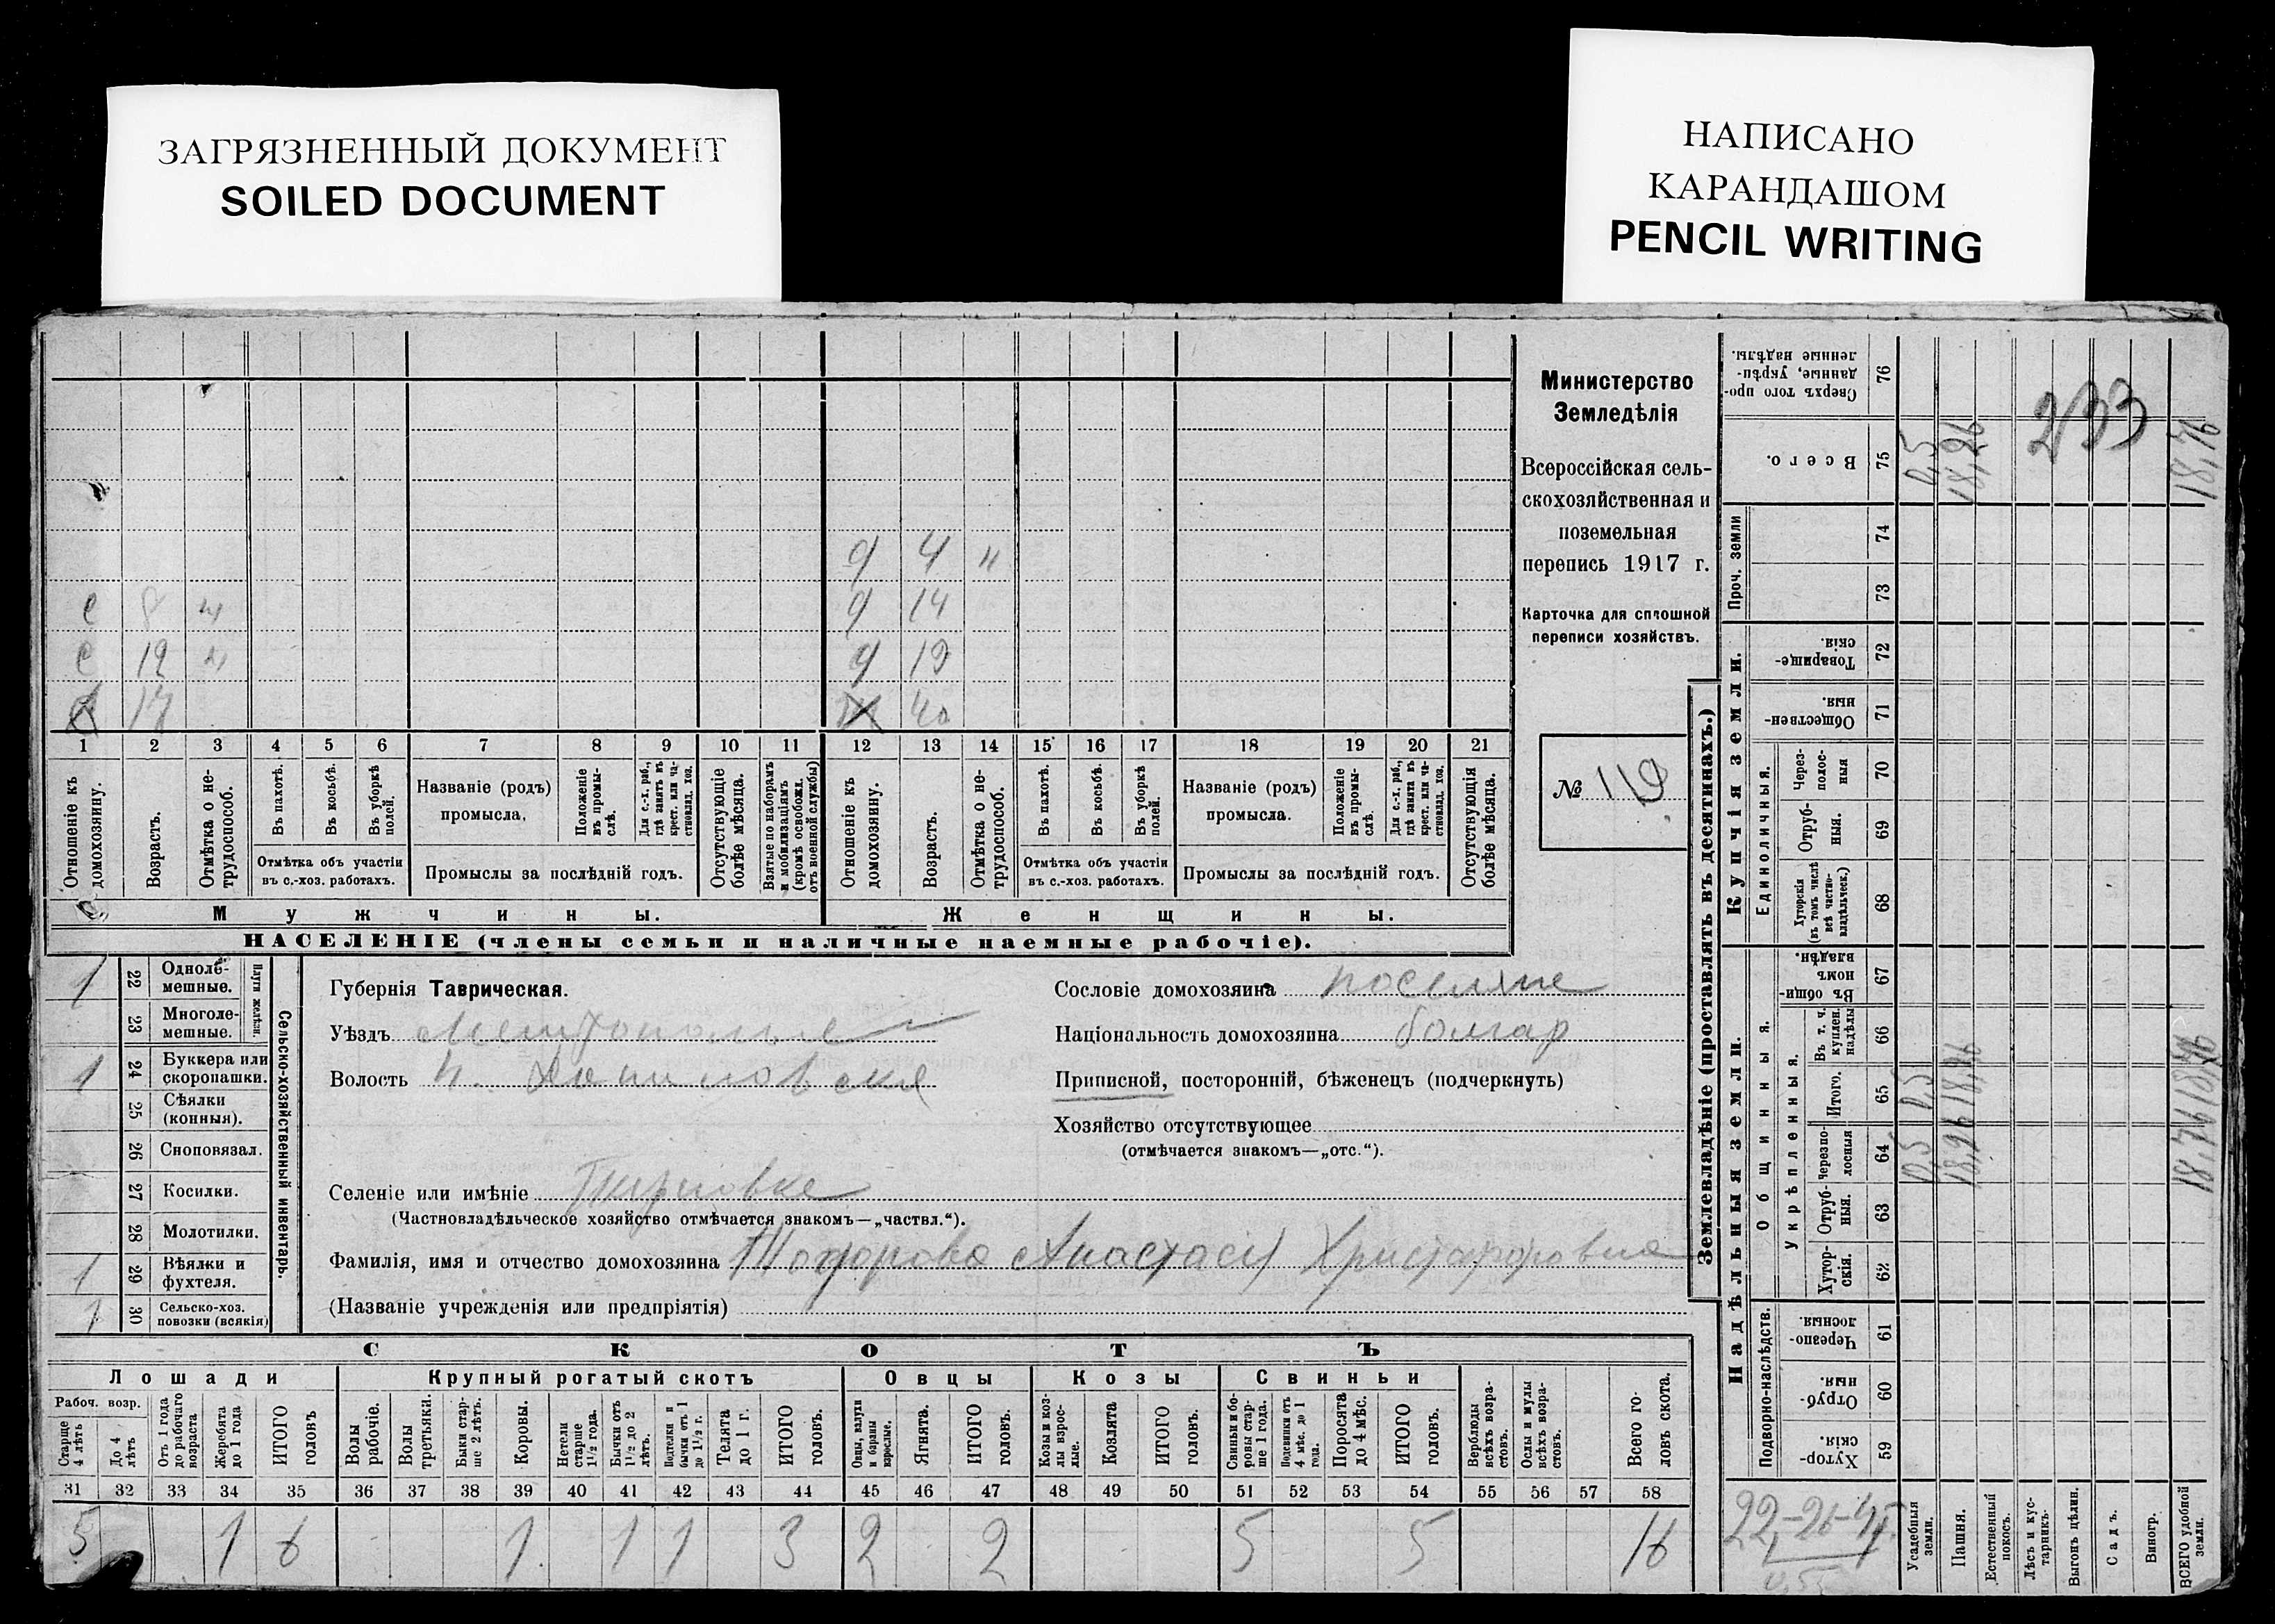 ЗАГРЯЗНЕННЫЙ ДОКУМЕНТ
SOILED DOCUMENT
НАПИСАНО
КАРАНДАШОМ
PENCIL WRITING
Министерство
Земледѣлія
Всероссійская сель-
скохозяйственная и
поземельная
перепись 1917 г.
Карточка для сплошной
переписи хозяйствъ.
№ 119
233
д 4 н
с 8 н д 14
с 12 н д 19
17 40
1 2 3 4 5 6 7 8 9 10 11 12 13 14 15 16 17 18 19 20 21
Отношеніе къ домохозяину.
Возрастъ.
Отмѣтка о не-трудоспособ.
Въ пахотѣ.
Въ косьбѣ.
Въ уборкѣ полей.
Отмѣтка объ участіи
въ с.-хоз. работахъ.
Названіе (родъ)
промысла.
Положеніе въ промы-слѣ.
Для с.-х. раб., гдѣ занятъ въ крест. или ча-стновлад. хоз.
Промыслы за послѣдній годъ.
Отсутствующіе болѣе мѣсяца.
Взятые по наборамъ и мобилизаціямъ (кромѣ освобожд. отъ военной службы)
Отношеніе къ домохозяину.
Возрастъ.
Отмѣтка о не-трудоспособ.
Въ пахотѣ.
Въ косьбѣ.
Въ уборкѣ полей.
Отмѣтка объ участіи
въ с.-хоз. работахъ.
Названіе (родъ)
промысла.
Положеніе въ промы-слѣ.
Для с.-х. раб., гдѣ занята въ крест. или ча-стновлад. хоз.
Промыслы за послѣдній годъ.
Отсутствующія болѣе мѣсяца.
Мужчины.
Женщины.
НАСЕЛЕНІЕ (члены семьи и наличные наемные рабочіе).
Сельско-хозяйственный инвентарь.
Плуги желѣзн.
1 22 Одноле-мешные.
23 Многоле-мешные.
1 24 Буккера или скоропашки.
25 Сѣялки (конныя).
26 Сноповязал.
27 Косилки.
28 Молотилки.
1 29 Вѣялки и фухтеля.
1 30 Сельско-хоз. повозки (всякія)
Губернія Таврическая.
Уѣздъ
Волость
Селеніе или имѣніе Терновка
(Частновладѣльческое хозяйство отмѣчается знакомъ—„частвл.“).
Фамилія, имя и отчество домохозяина Тодорова Анастасія Христофоровна
(Названіе учрежденія или предпріятія)
Сословіе домохозяина поселяне
Національность домохозяина болгар
Приписной, посторонній, бѣженецъ (подчеркнуть)
Хозяйство отсутствующее
(отмѣчается знакомъ—„отс.“).
СКОТЪ
Лошади Крупный рогатый скотъ Овцы Козы Свиньи
Рабоч. возр.
Старше 4 лѣтъ
До 4 лѣтъ
Отъ 1 года до рабочаго возраста
Жеребята до 1 года
ИТОГО головъ
Волы рабочіе.
Волы третьяки.
Быки стар-ше 2 лѣтъ.
Коровы.
Нетели старше 1½ года.
Бычки отъ 1½ до 2 лѣтъ.
Подтелки и бычки отъ 1 до 1½ г.
Телята до 1 г.
ИТОГО головъ.
Овцы, валухи и бараны взрослые.
Ягнята.
ИТОГО головъ.
Козы и коз-лы взрос-лые.
Козлята
ИТОГО головъ.
Свиньи и бо-ровы стар-ше 1 года.
Подсвинки отъ 4 мѣс. до 1 года.
Поросята до 4 мѣс.
ИТОГО головъ.
Верблюды всѣхъ возра-стовъ.
Ослы и мулы всѣхъ возра-стовъ.
Всего го-ловъ скота.
31 32 33 34 35 36 37 38 39 40 41 42 43 44 45 46 47 48 49 50 51 52 53 54 55 56 57 58
5 1 6 1 1 1 3 2 2 5 5 16
Землевладѣніе (проставлять въ десятинахъ.)
Купчія земли.
Надѣльныя земли.
76 Сверхъ того про-данные, укрѣп-ленные надѣлы.
75 Всего. 0,5 18,26 18,76
Проч. земли
74
73
72 Товарище-скія.
71 Обществен-ныя.
Единоличныя.
70 Черезполос-ныя
69 Отруб-ныя.
68 Хуторскія (въ томъ числѣ всѣ частно-владѣльческ.)
Общинныя.
67 Въ общин-номъ владѣн.
Укрѣпленныя.
66 Въ т. ч. куплен. надѣлы
65 Итого. 0,5 18,26 18,76
64 Черезпо-лосныя 0,5 18,26 18,76
63 Отруб-ныя.
62 Хутор-скія.
Подворно-наслѣдств.
61 Черезпо-лосныя.
60 Отруб-ныя.
59 Хутор-скія.
Усадебныя земли.
Пашня.
Естественный покосъ.
Лѣсъ и кус-тарникъ.
Выгонъ цѣлин.
Садъ.
Виногр.
ВСЕГО удобной земли.